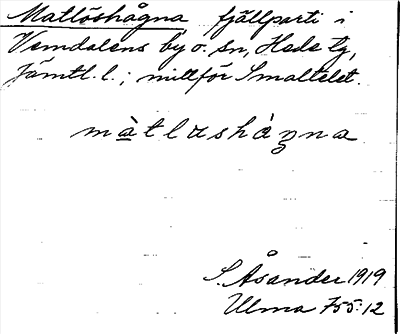 Matlöshågna fjällparti i
Vemdalens by o. sn, Hede tg,
Jämtl. l.; mittför Smaltelet.
màtlɷshȧꞑna
S. Åsander 1919
Ulma 755:12